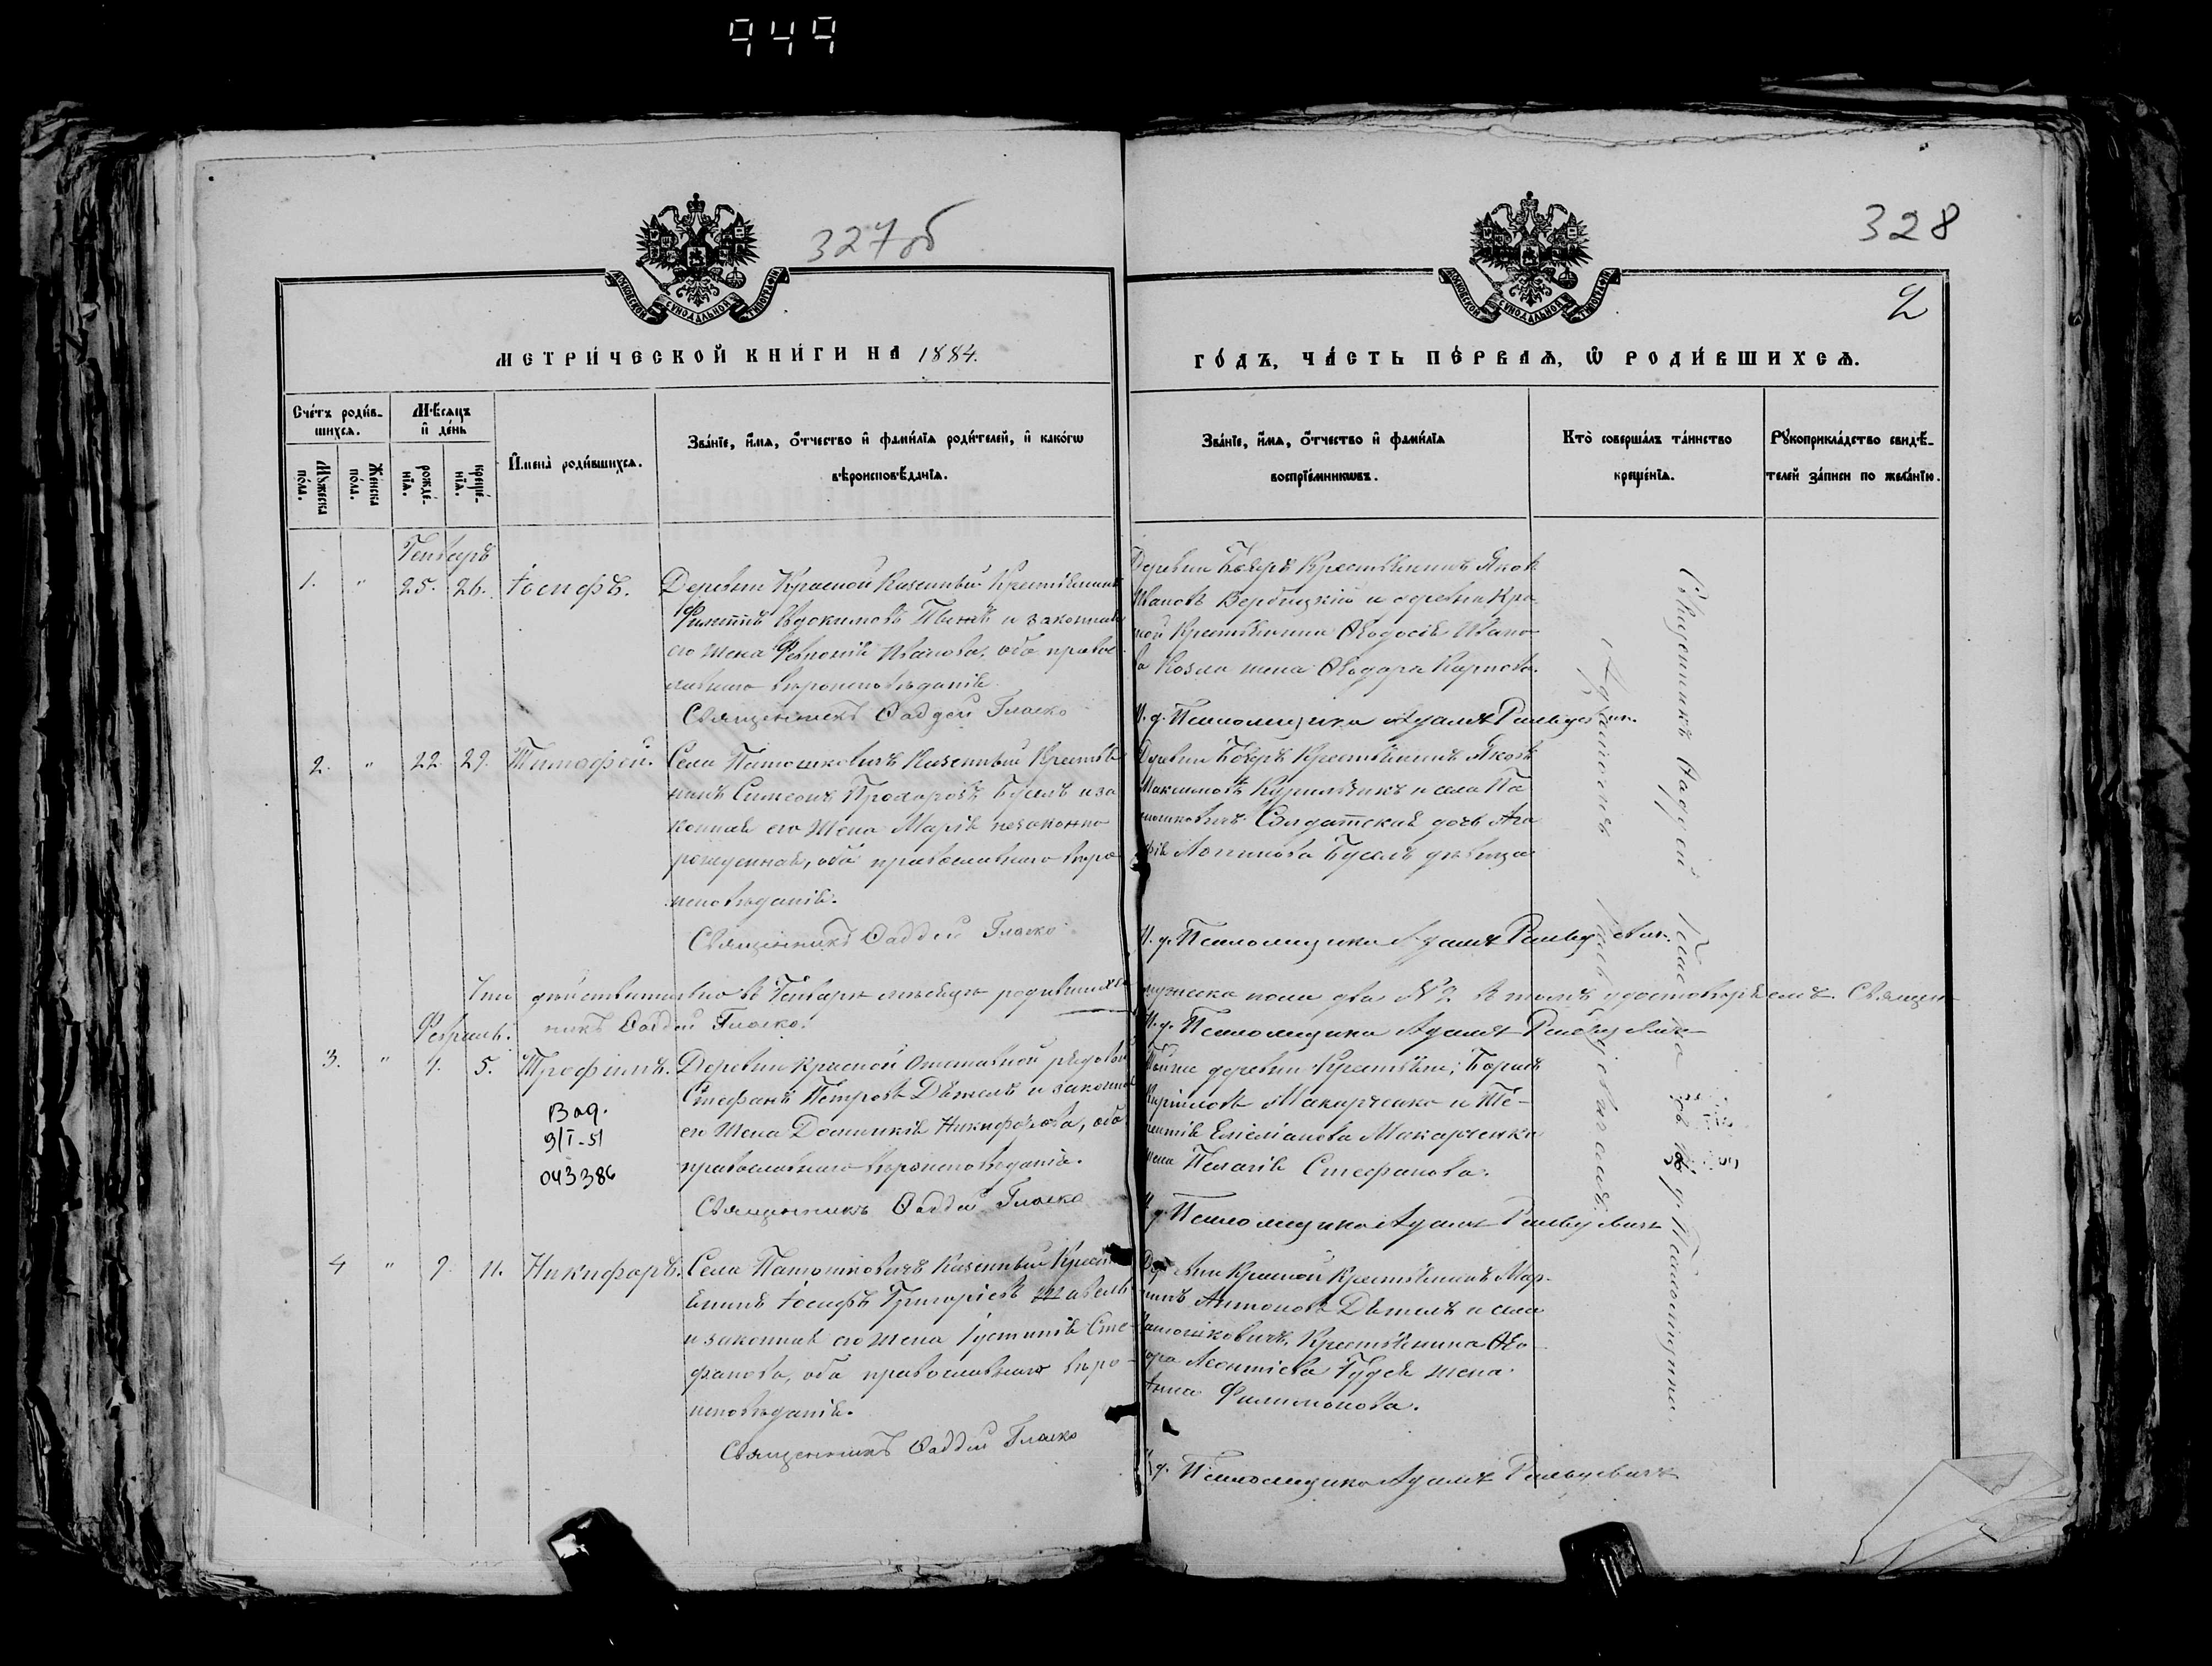 949
327об
328
2
МОСКОВСКОЙ СѴНОДАЛЬНОЙ ТИПОГРАФІИ
МОСКОВСКОЙ СѴНОДАЛЬНОЙ ТИПОГРАФІИ
МЕТРИ́ЧЕСКОЙ КНИ́ГИ НА 1884.
ГО́ДЪ, ЧА́СТЬ ПЕ́РВАѦ, Ѡ҆ РОДИ́ВШИХСѦ.
Сче́тъ роди́в-
шихсѧ.
Мꙋ́жеска по́ла.
Же́нска по́ла.
Мѣ́сѧцъ
и҆ де́нь
рожде́-нїѧ.
креще́-нїѧ.
И҆мена̀ роди́вшихсѧ.
Зва́нїе, и҆́мѧ, ѻ҆́тчество и҆ фами́лїѧ роди́телей, и҆ како́гѡ
вѣроисповѣ́данїѧ.
Зва́нїе, и҆́мѧ, ѻ҆́тчество и҆ фами́лїѧ
воспрїе́мникѡвъ.
Кто̀ соверша́лъ та́инство
креще́нїѧ.
Рꙋкоприкла́дство свидѣ́-
телей за́писи по жела́нїю.
Генварь
1. " 25. 26. Іосифъ.
Деревни Красной Казенный Крестьянинъ
Евдокимовъ и законная
его жена Февронія Иванова, оба право-
славнаго вѣроисповѣданія
Священникъ Фаддей Гласко
Деревни Крестьянинъ Яков
Ивановъ Вербицкій и деревни Кра-
ной Крестьянина Ѳеодосія Ивано-
ва Козла жена Ѳеодора Карпова.
И. д. Псаломщика Адамъ
2. " 22. 29. Тимофей.
Села Патошковичъ Казенный Крестья-
нинъ Симеонъ Прохоровъ Буселъ и за-
конная его жена Марія незаконно-
рожденная, оба православнаго вѣро-
исповѣданія.
Священникъ Фаддей Гласко
Деревни Крестьянинъ Яковъ
Максимовъ и села Па
тошковичъ Солдатская дочь Ага
фія Логинова Буселъ дѣвица
И. д. Псаломщика Адамъ
Что дѣйствительно въ Генварѣ мѣсяцѣ родившихся
мужеска пола два № 2. въ томъ удостовѣряемъ. Священ-
никъ Фаддей Гласко.
И. д. Псаломщика Адамъ
Февраль.
3. " 4. 5. Трофимъ.
Ваq.
9/I-51
043386
Деревни Красной Отставной рядовой
Стефанъ Петровъ Дѣтелъ и законная
его жена Домникія Никифорова, оба
православнаго вѣроисповѣданія.
Священникъ Фаддей Гласко
Тойже деревни Крестьяне; Борисъ
Кирилловъ Макарченко и Те-
рентія Емиліанова Макарченка
жена Пелагія Стефанова.
И. д. Псаломщика Адамъ
4 " 9. 11. Никифоръ.
Села Патошковичъ Казенный Кресть-
янинъ Іосифъ Григоріевъ
и законная его жена Іустинія Сте-
фанова, оба православнаго вѣро-
исповѣданія.
Священникъ Фаддей Гласко
Деревни Красной Крестьянинъ Мар-
тинъ Антоновъ Дѣтелъ и села
Патошковичъ, Крестьянина Ѳео-
дора Леонтіева жена
Анна Филимонова.
И. д. Псаломщика Адамъ
Священникъ Фаддей Гласко
и. д. Псаломщика
Адамомъ